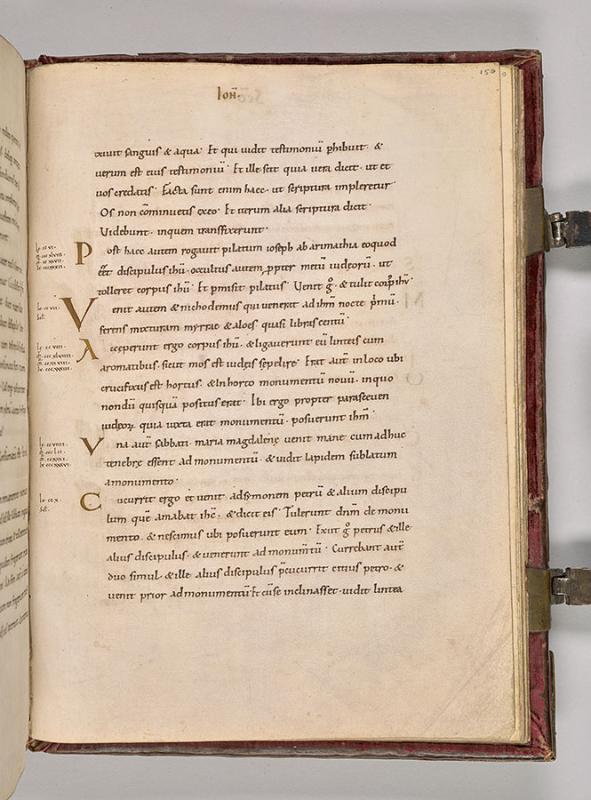 150
Ioħ.
exivit sanguis & aqua. Et qui vidit testimoniū phibuit. &
verum est eius testimoniū. Et ille scit quia vera dicit. ut et
vos credatis. Facta sunt enim haec. ut scriptura impleretur
Os non cōminuetis ex eo. Et iterum alia scriptura dicit.
Videbunt. inquem transfixerunt.
Post haec autem rogavit pilatum ioseph ab arimathia eo quod
discipulus ihū. occultus autem ppter metū iudeorū. ut
tolleret corpus ihū. Et pmisit pilatus. Venit g̊. & tulit corp ihū.
Venit autem & nichodemus qui venerat ad ihm̄ nocte pmū.
ferens mixturam myrrae & aloes quasi libras centū.
Acceperunt ergo corpus ihū. & ligaverunt eū linteis cum
aromatibus. sicut mos est iudęis sepelire. Erat aut̄ in loco ubi
crucifixus est hortus. & in horto monumentū novū. in quo
nondū quisquā positus erat. Ibi ergo propter parasceven
iudeoꝝ. quia iuxta erat monumentū. posuerunt ihm̄.
Una aut̄ sabbati. maria magdalenę venit mane cum adhuc
tenebrę essent ad monumentū. & vidit lapidem sublatum
a monumento.
Cucurrit ergo et venit. ad simonem petrū & alium discipu
lum quē amabat ihc̄. & dicit eis. Tulerunt dnm̄ de monu
mento. & nescimus ubi posuerunt eum. Exiit g̊ petrus & ille
alius discipulus. & venerunt ad monumtū. Currebant aut̄
duo simul. & ille alius discipulus pcucurrit citius petro. &
venit prior ad monumentū. Et cū se inclinasset. vidit lintea